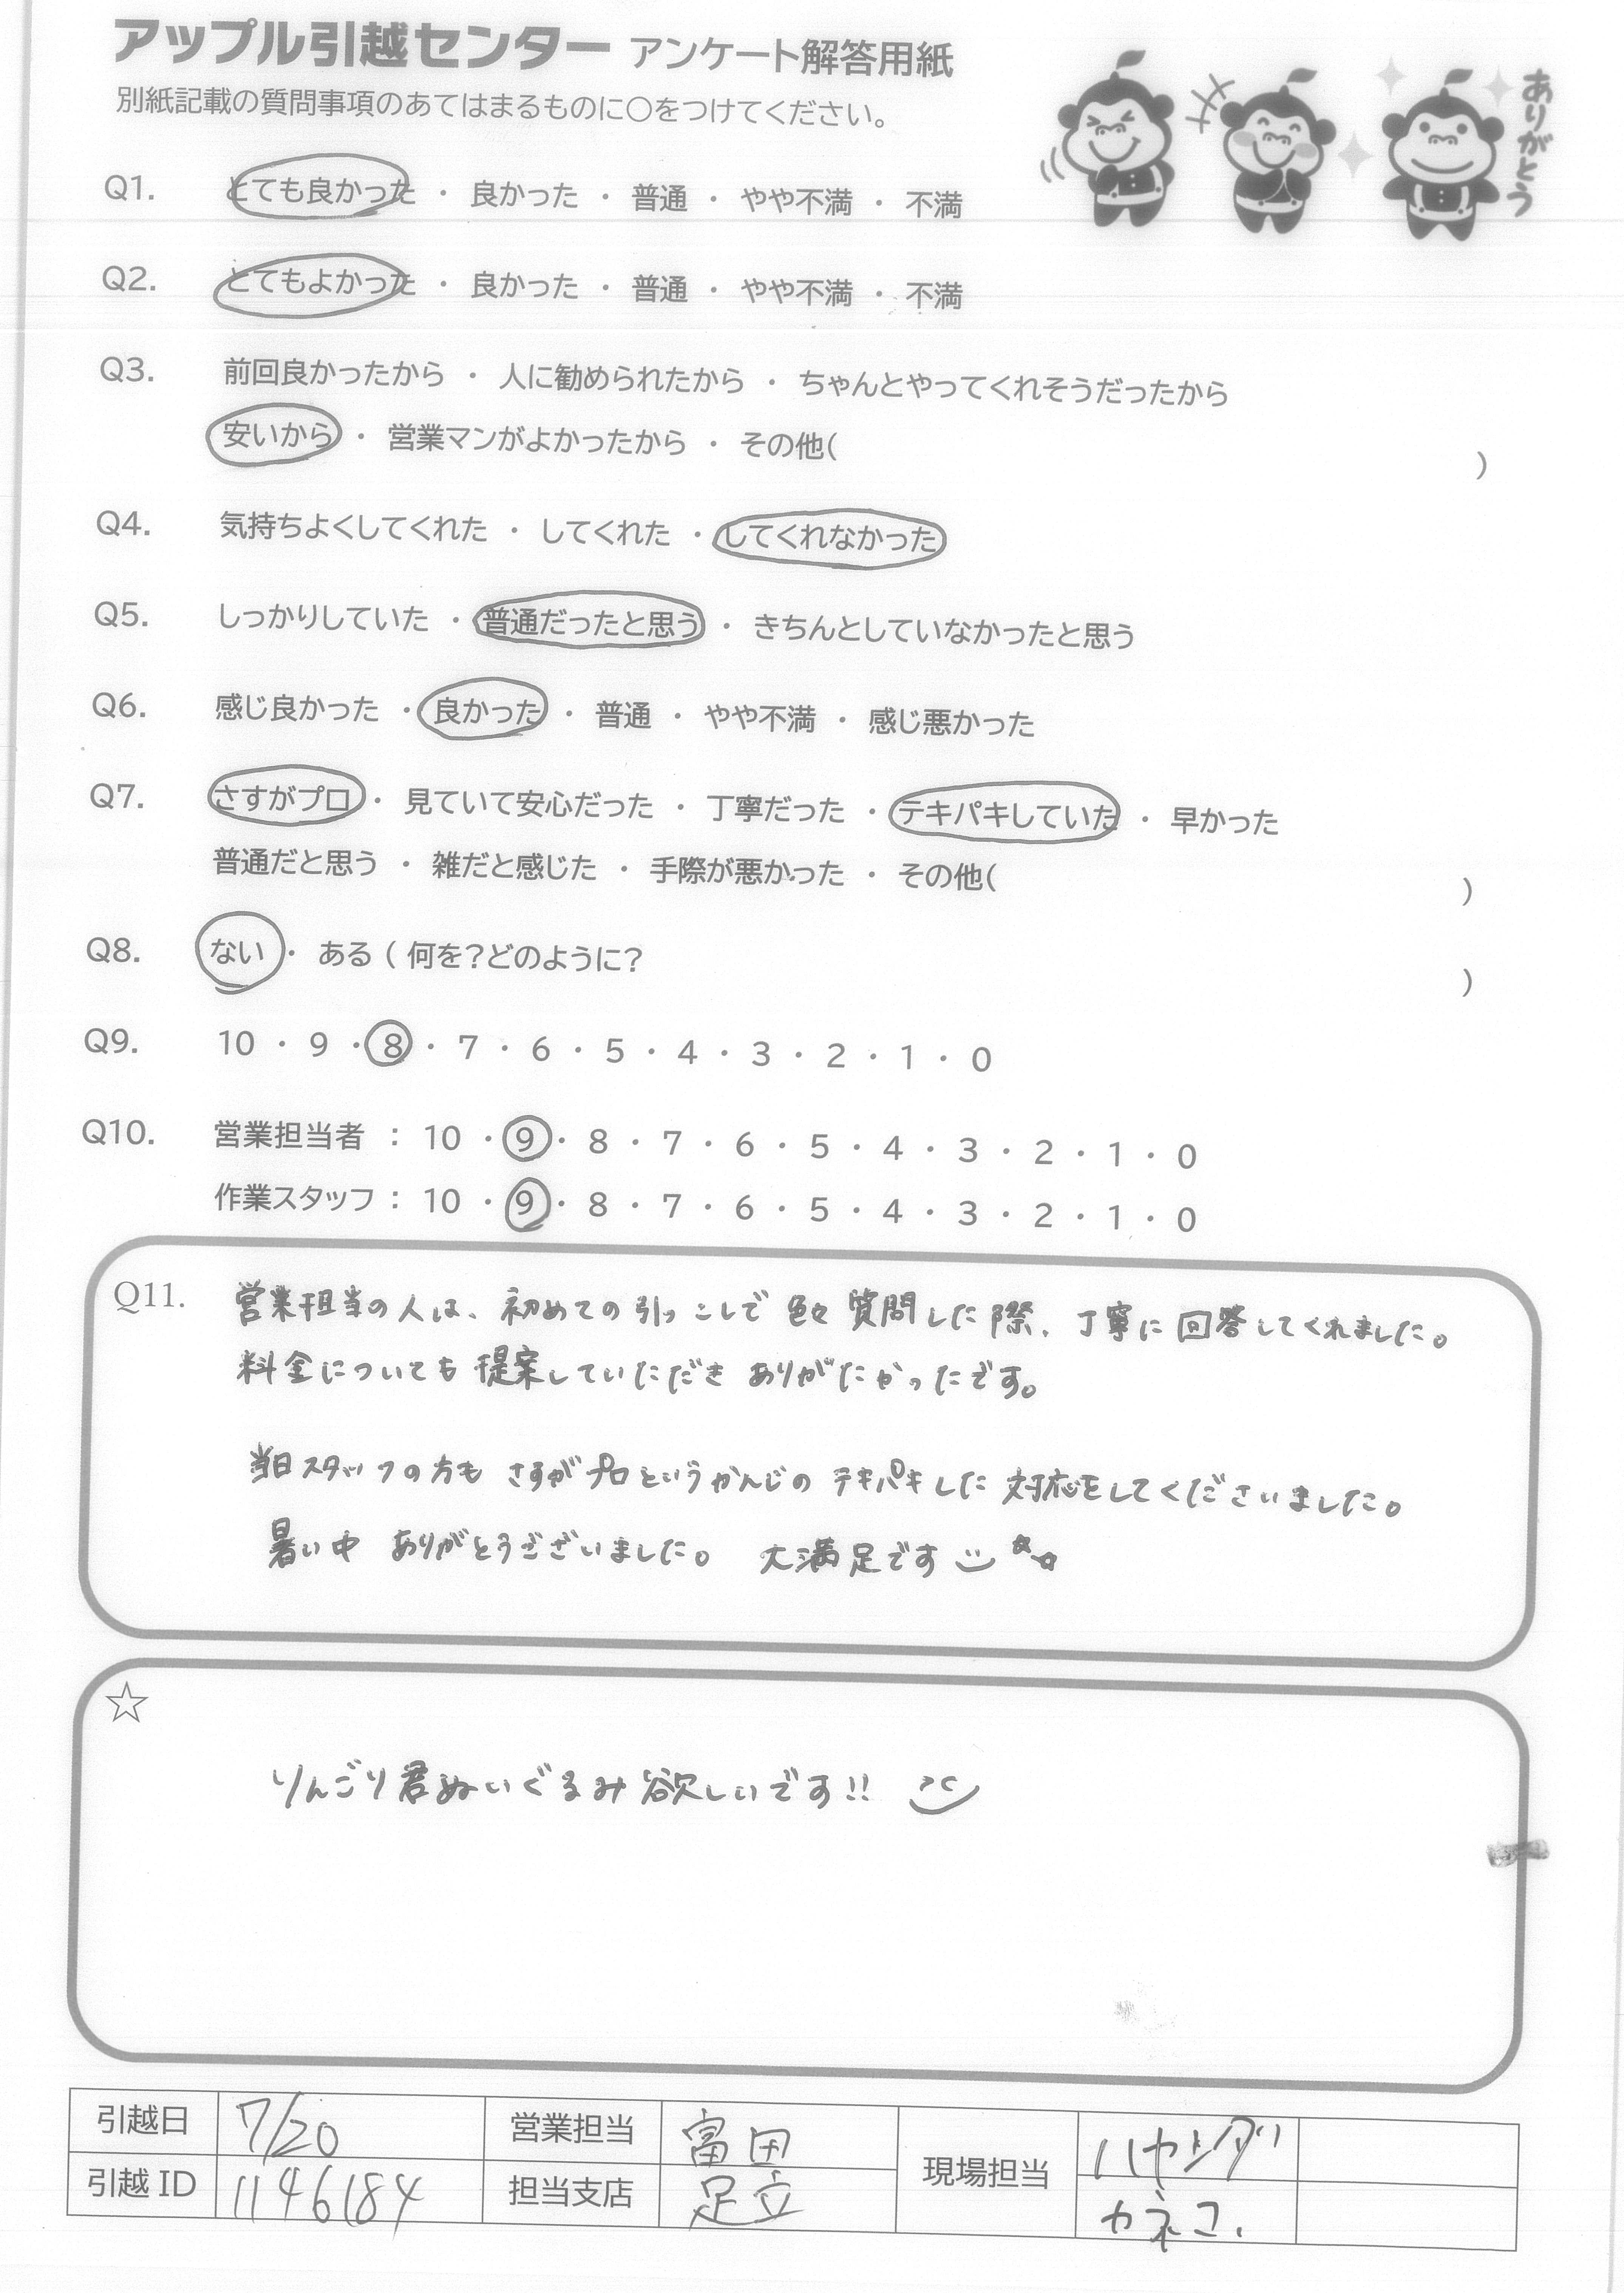 アップル引越センター アンケート解答用紙
別紙記載の質問事項のあてはまるものに〇をつけてください。
ありがとう
Q1. とても良かった ・ 良かった ・ 普通 ・ やや不満 ・ 不満
Q2. とてもよかった ・ 良かった ・ 普通 ・ やや不満 ・ 不満
Q3. 前回良かったから ・ 人に勧められたから ・ ちゃんとやってくれそうだったから
安いから ・ 営業マンがよかったから ・ その他( )
Q4. 気持ちよくしてくれた ・ してくれた ・ してくれなかった
Q5. しっかりしていた ・ 普通だったと思う ・ きちんとしていなかったと思う
Q6. 感じ良かった ・ 良かった ・ 普通 ・ やや不満 ・ 感じ悪かった
Q7. さすがプロ ・ 見ていて安心だった ・ 丁寧だった ・ テキパキしていた ・ 早かった
普通だと思う ・ 雑だと感じた ・ 手際が悪かった ・ その他( )
Q8. ない ・ ある ( 何を?どのように? )
Q9. 10 ・ 9 ・ 8 ・ 7 ・ 6 ・ 5 ・ 4 ・ 3 ・ 2 ・ 1 ・ 0
Q10. 営業担当者 : 10 ・ 9 ・ 8 ・ 7 ・ 6 ・ 5 ・ 4 ・ 3 ・ 2 ・ 1 ・ 0
作業スタッフ : 10 ・ 9 ・ 8 ・ 7 ・ 6 ・ 5 ・ 4 ・ 3 ・ 2 ・ 1 ・ 0
Q11. 営業担当の人は、初めての引っこしで色々質問した際、丁寧に回答してくれました。
料金についても提案していただきありがたかったです。
当日スタッフの方もさすがプロというかんじのテキパキした対応をしてくださいました。
暑い中 ありがとうございました。 大満足です
☆
りんごり君ぬいぐるみ欲しいです!!
引越日 7/20 営業担当 富田 現場担当 ハヤシダ
引越ID 1146184 担当支店 足立 カネコ